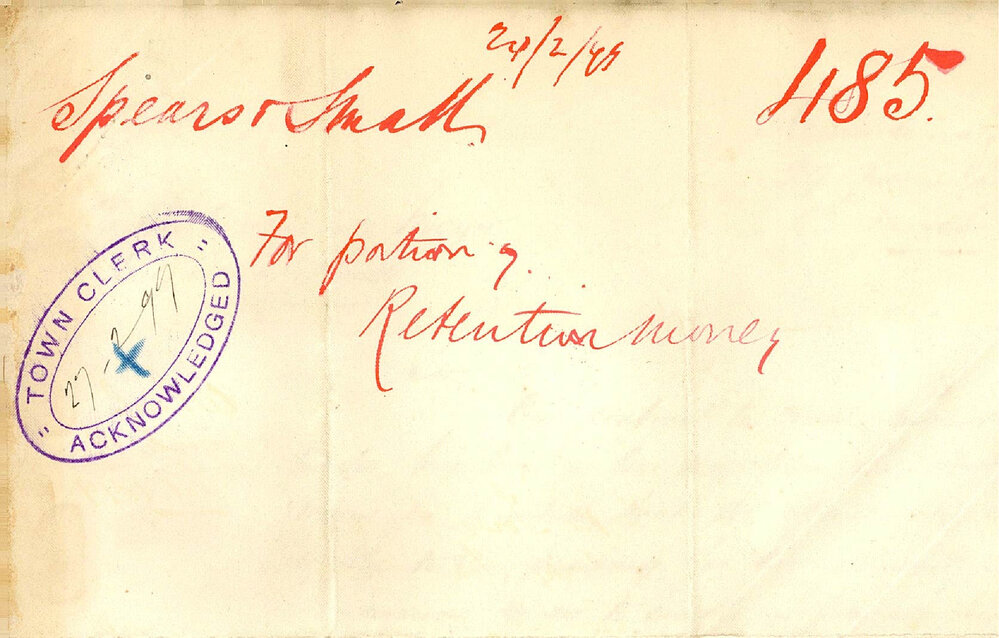 24/2/99
485.
Spears & Small
For portion of
Retention money
TOWN CLERK
27-2-99
ACKNOWLEDGED